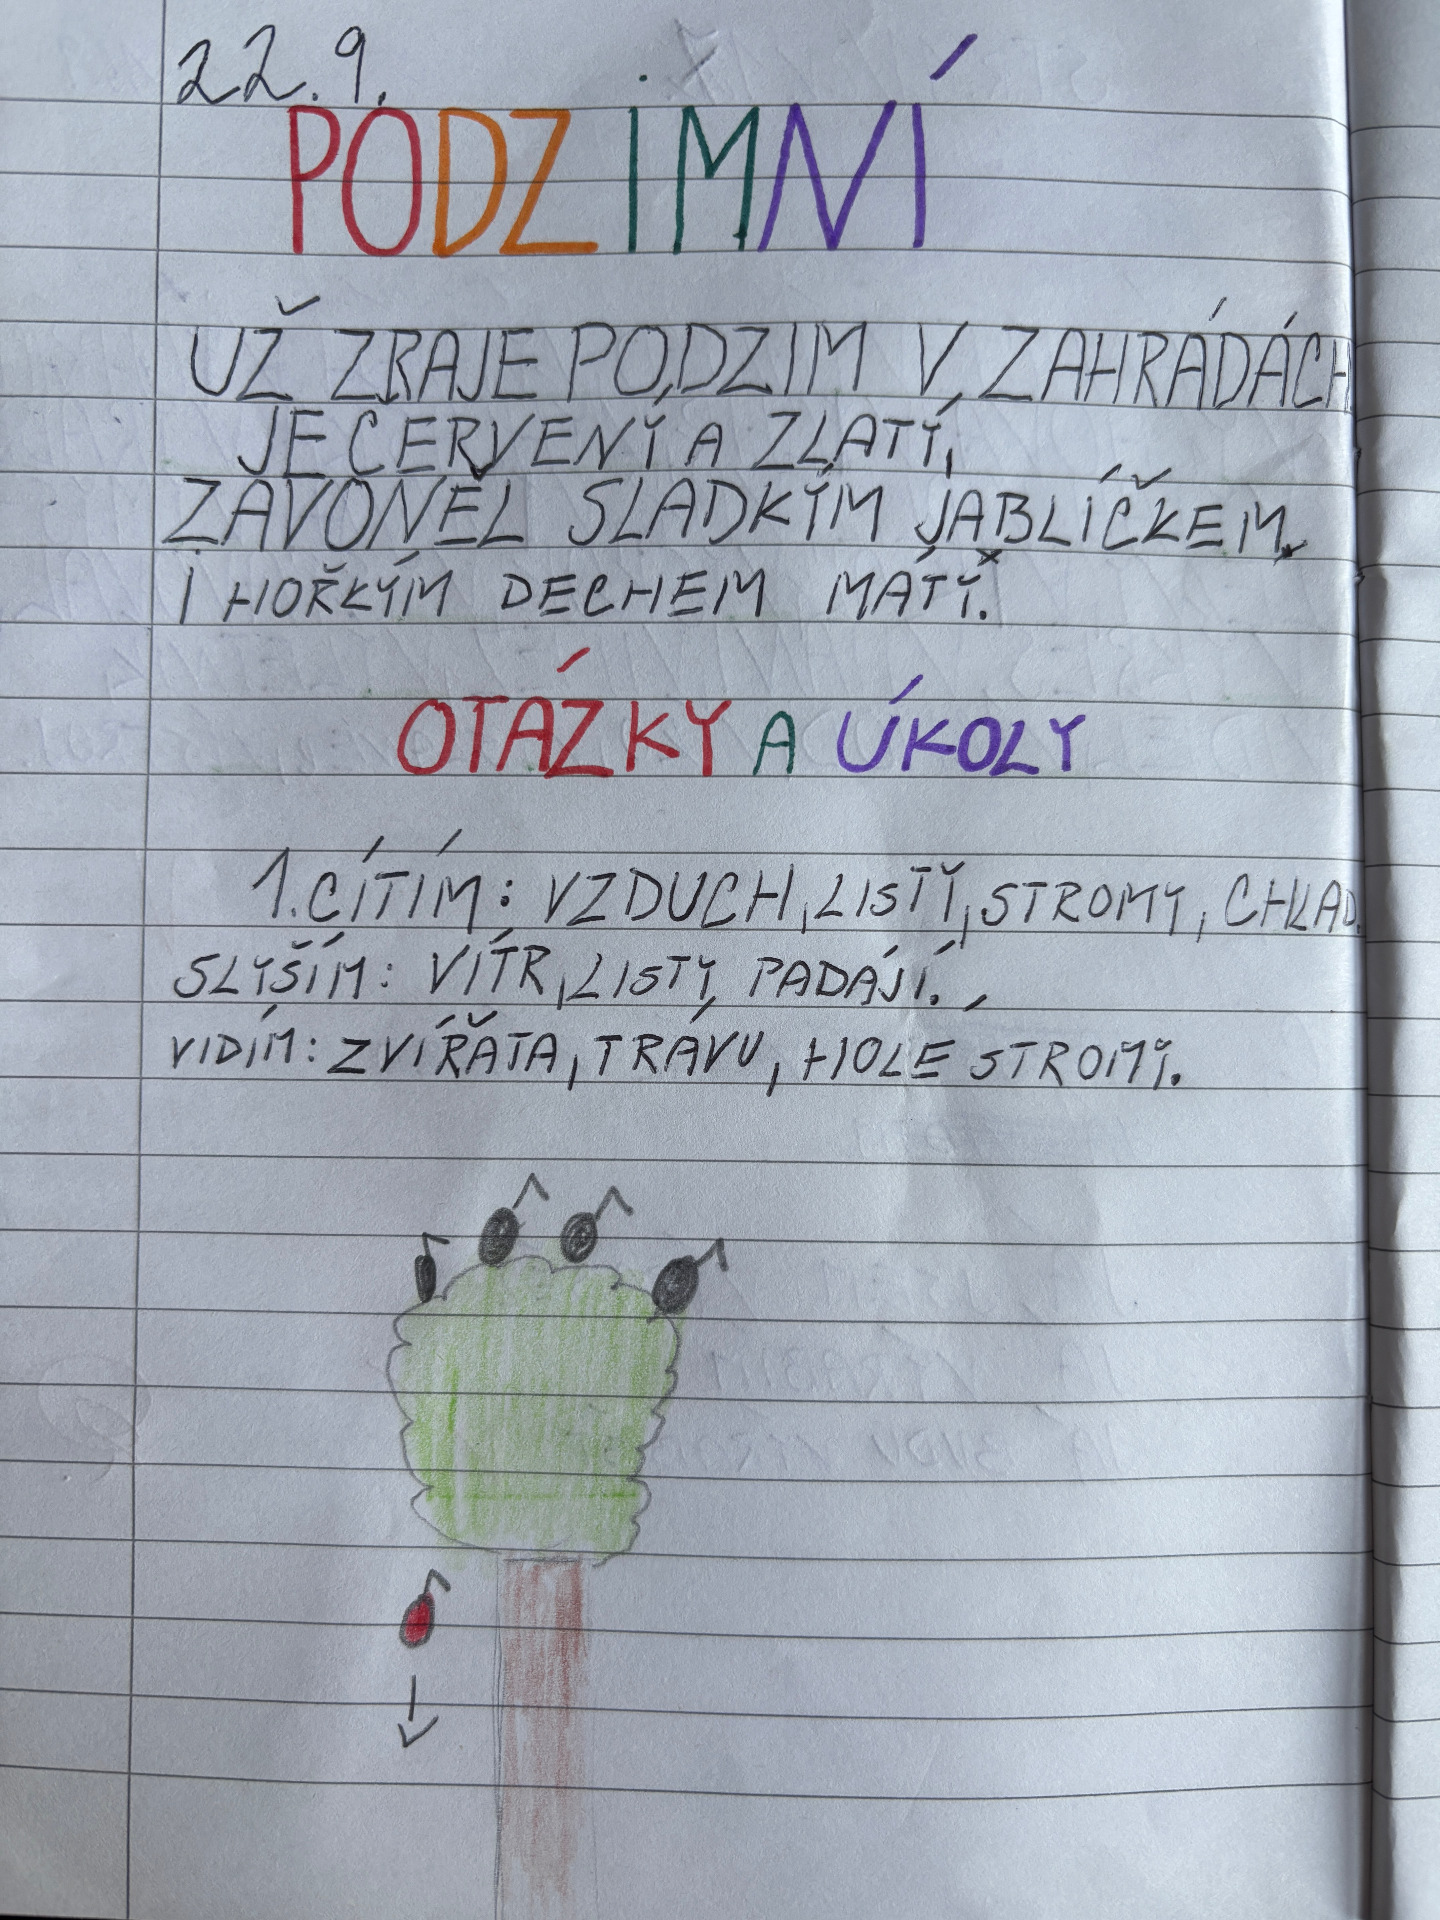 22.9.
PODZIMNÍ
UŽ ZRAJE PODZIM V ZAHRÁDÁCH,
JE ČERVENÝ A ZLATÝ,
ZAVONĚL SLADKÝM JABLÍČKEM
I HOŘKÝM DECHEM MÁTY.
OTÁZKY A ÚKOLY
1. CÍTÍM: VZDUCH, LISTY, STROMY, CHLAD.
SLYŠÍM: VÍTR, LISTY PADAJÍ.
VIDÍM: ZVÍŘATA, TRÁVU, HOLÉ STROMY.